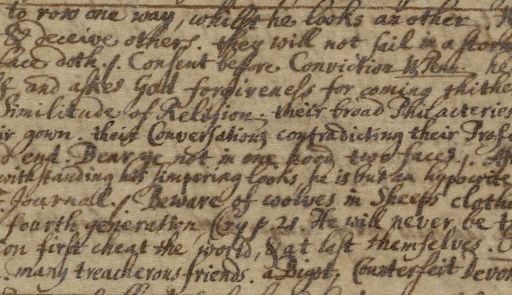 to row one way, whilst he looks an other
& deceive others. they will not sail in a storm
face doth. Consent before Conviction he
& and askes God forgiveness for coming thithe
Similitude of Religion, their broad Philacteries
ir gown. their Conversations contradicting their Prof
d end. Bear ye not in one hood two faces.
withstanding his simpering looks he is but an hypocrite
Journall. Beware of woolves in Sheeps cloth
fourth generation p. 21. He will never be t
on first cheat the world, & at last themselves.
many treacherous friends. a Bigot, Counterfeit Devo